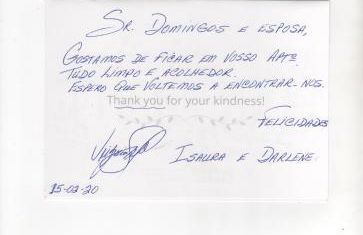 Sr. Domingos e esposa,
Gostamos de ficar em vosso aptº
Tudo limpo e acolhedor.
Espero que voltemos a encontrar-nos.
Thank you for your kindness!
Felicidades
Isaura e Darlene
15-02-20